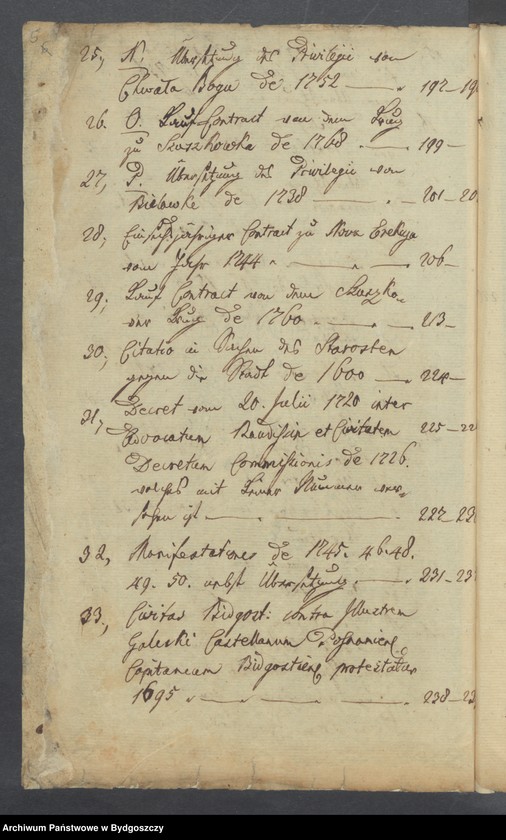 25, N. Übersetzung des Privilegii von
Chwała Bogu de 1752 — 197-19
26. O. Kauf Contract von dem Krug
zu Skuszkowka de 1768 — 199-
27, P. Übersetzung des Privilegii von
Bielawke de 1738 — 201-20
28, Contract zu Nova Erekcya
vom Jahr 1744 — 206-
29. Kauf Contract von dem
Krug de 1760 — 213-
30, Citatio in Sachen des Starosten
gegen die Stadt de 1600 — 224-
31, Decret vom 20. Julii 1720 inter
Advocatum et Civitatem 225-22
Decretum Commissionis de 1726.
welches mit Nummer ver-
sehen ist — 227-23
32, Manifestationes de 1745. 46. 48.
49. 50. nebst Übersetzung — 231-23
33, Civitas Bidgost: contra Illustrem
Galeski Castellanum Posnaniens
Capitaneum Bidgostiens protestatur
1695 — 238-23
Archiwum Państwowe w Bydgoszczy